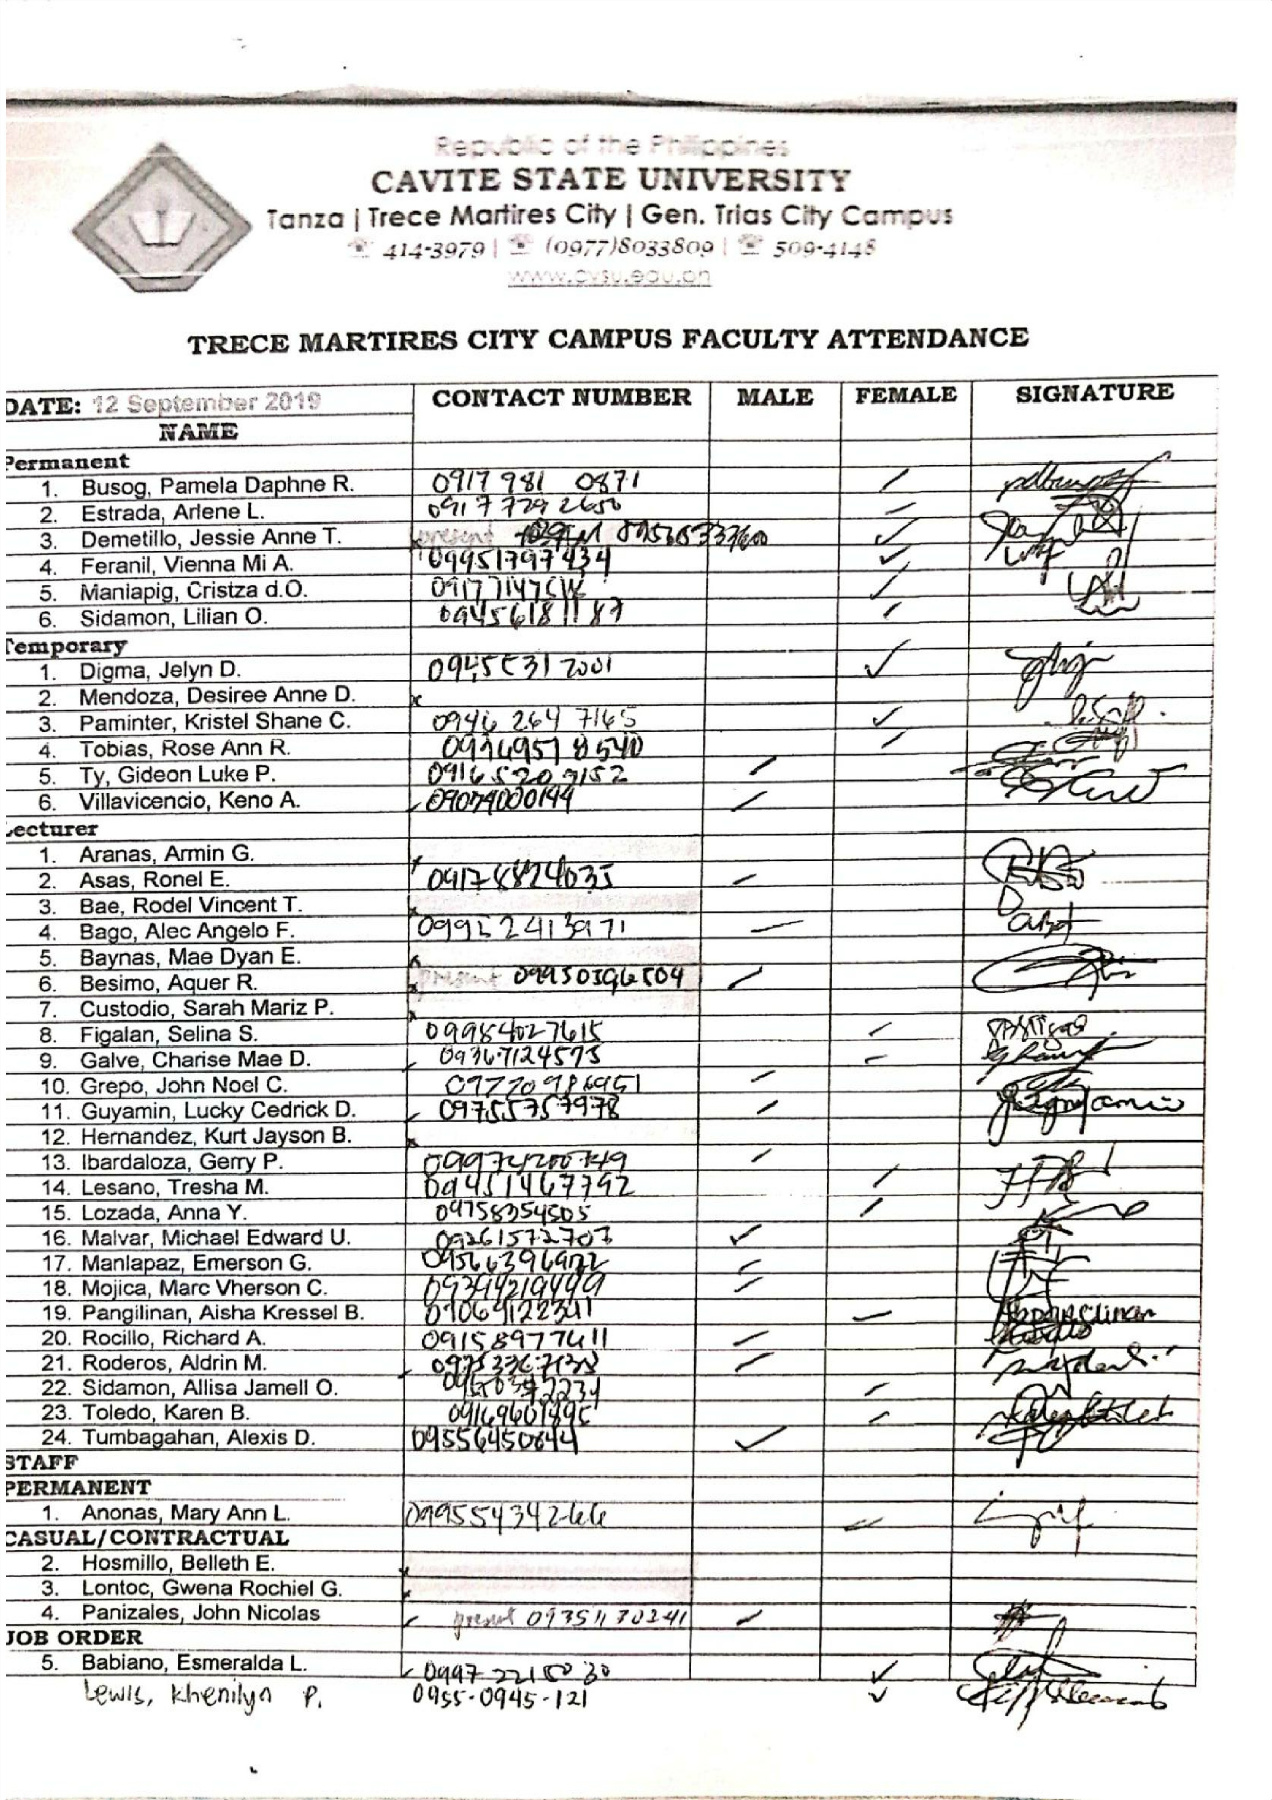 Republic of the Philippines
CAVITE STATE UNIVERSITY
Tanza | Trece Martires City | Gen. Trias City Campus
☏ 414-3979 | ☏ (0977)8033809 | ☏ 509-4148
www.cvsu.edu.ph
TRECE MARTIRES CITY CAMPUS FACULTY ATTENDANCE
DATE: 12 September 2019 CONTACT NUMBER MALE FEMALE SIGNATURE
NAME
Permanent
1. Busog, Pamela Daphne R. 0917 981 0871
2. Estrada, Arlene L. 0917 729 2650
3. Demetillo, Jessie Anne T. present
4. Feranil, Vienna Mi A. 09951797434
5. Manlapig, Cristza d.O.
6. Sidamon, Lilian O. 09456181187
Temporary
1. Digma, Jelyn D. 0945 531 2001
2. Mendoza, Desiree Anne D. x
3. Paminter, Kristel Shane C. 0946 264 7165
4. Tobias, Rose Ann R.
5. Ty, Gideon Luke P. 0916 520 9152
6. Villavicencio, Keno A. 09079000144
Lecturer
1. Aranas, Armin G.
2. Asas, Ronel E. 09178824035
3. Bae, Rodel Vincent T. x
4. Bago, Alec Angelo F. 09952413971
5. Baynas, Mae Dyan E. x
6. Besimo, Aquer R. present 09950396504
7. Custodio, Sarah Mariz P. x
8. Figalan, Selina S. 09984027615
9. Galve, Charise Mae D. 09367124573
10. Grepo, John Noel C. 09770986951
11. Guyamin, Lucky Cedrick D. 09755757978
12. Hernandez, Kurt Jayson B. x
13. Ibardaloza, Gerry P. 09974200749
14. Lesano, Tresha M. 09451467792
15. Lozada, Anna Y. 09758354505
16. Malvar, Michael Edward U. 09261572707
17. Manlapaz, Emerson G.
18. Mojica, Marc Vherson C. 09394219449
19. Pangilinan, Aisha Kressel B.
20. Rocillo, Richard A. 09158977611
21. Roderos, Aldrin M.
22. Sidamon, Allisa Jamell O.
23. Toledo, Karen B. 09169601895
24. Tumbagahan, Alexis D. 09556450844
STAFF
PERMANENT
1. Anonas, Mary Ann L. 09955434266
CASUAL/CONTRACTUAL
2. Hosmillo, Belleth E. x
3. Lontoc, Gwena Rochiel G. x
4. Panizales, John Nicolas present 09351170241
JOB ORDER
5. Babiano, Esmeralda L. 0997 2218030
Lewis, Khenilyn P. 0955-0945-121